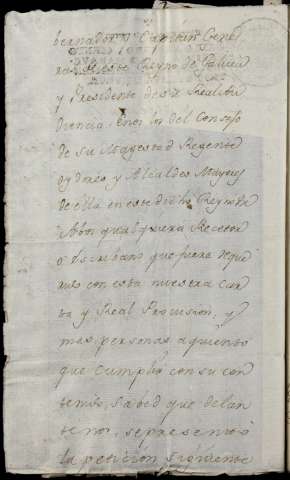 bernador y Capitan Gene
ral de este Reyno de Galicia
y Presidente de su Real Au
diencia Señores del Consejo
de su Magestad Regente
oydores y Alcaldes Mayores
de ella en este dicho Reyno &a
A bos qualquiera Recetor
o escribano que fuera requi
rido con esta nuestra car
ta y Real Provision, y
mas personas a quienes
que cumplio con su con
tenido, sabed que delan
te nos, se presento
la peticion siguiente